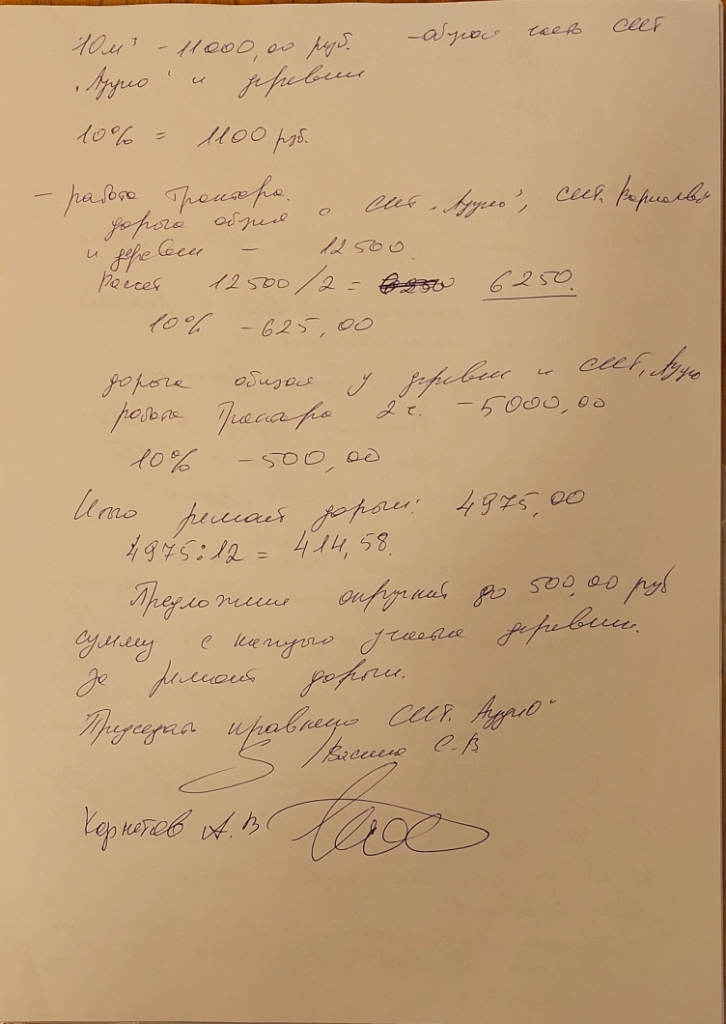 10 м³ - 11000,00 руб. - общая часть СНТ
"Аудио" и деревни
10% = 1100 руб.
- работа трактора.
дорога общая с СНТ "Аудио", СНТ
и деревни - 12500.
Расчет 12500/2 = 6250 6250.
10% - 625,00
дорога общая у деревни и СНТ "Аудио
работа трактора 2 ч. - 5000,00
10% - 500,00
Итого ремонт дороги: 4975,00
4975:12 = 414,58.
Предложение округлить до 500,00 руб
сумму с каждого участка деревни.
За ремонт дороги.
Председатель правления СНТ "Аудио"
/Васина С.В
Корнетов А.В